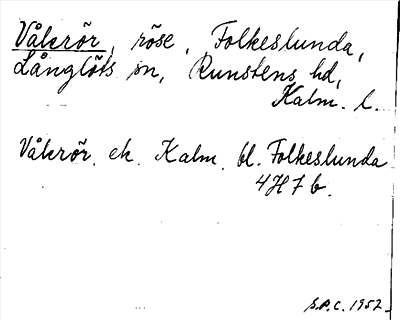 Våkrör, röse, Folkeslunda,
Långlöts sn, Runstens hd,
Kalm. l.
Våkrör. ek. Kalm. bl. Folkeslunda
4H7b.
S.P.C. 1957.